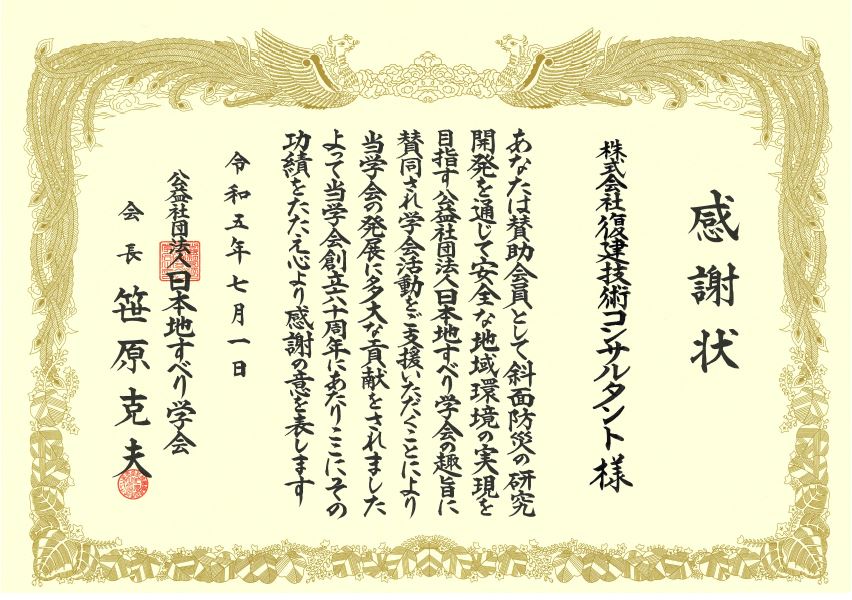 感謝状
株式会社復建技術コンサルタント 様
あなたは賛助会員として斜面防災の研究
開発を通じて安全な地域環境の実現を
目指す公益社団法人日本地すべり学会の趣旨に
賛同され学会活動をご支援いただくことにより
当学会の発展に多大な貢献をされました
よって当学会創立六十周年にあたりここにその
功績をたたえ心より感謝の意を表します
令和五年七月一日
公益社団法人日本地すべり学会
会長 笹原克夫